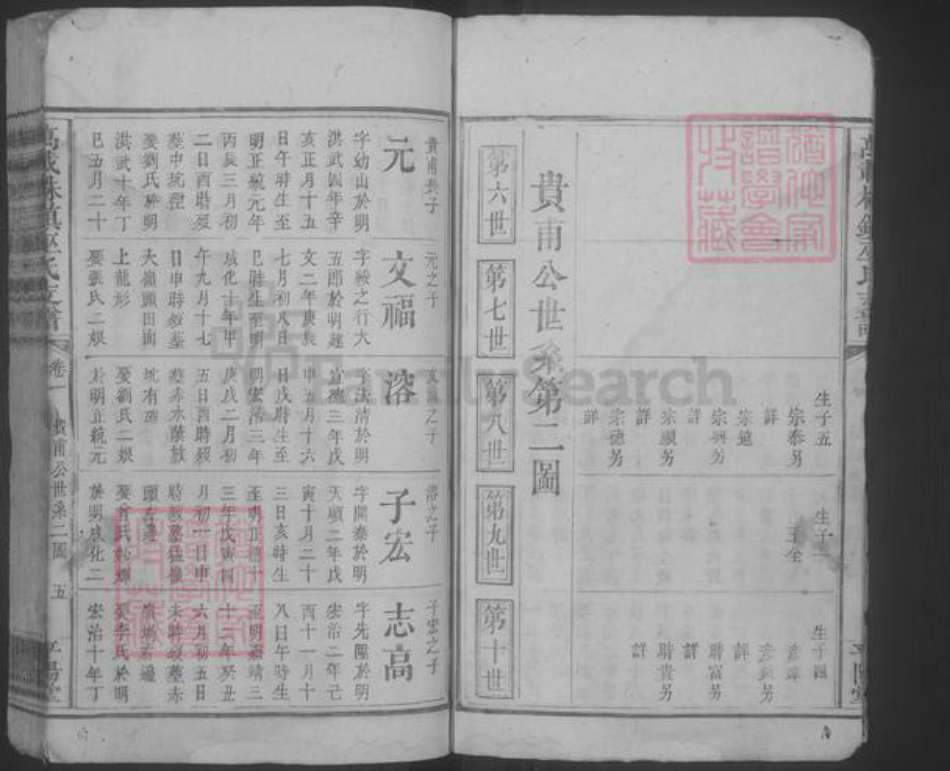 生子五
宗泰另
詳
宗遠
宗興另
詳
宗顯另
詳
宗德另
詳
生子二
玉全
生子四
詳
財富另
詳
財貴另
詳
貴甫公世系第二圖
第六世
第七世
第八世
第九世
第十世
貴甫長子
元
字幼山於明
洪武四年辛
亥正月十五
日午時生至
明正統元年
丙辰三月初
二日酉時歿
葬中坑
娶劉氏於明
洪武十年丁
巳五月二十
元之子
文福
字緩之行大
五郎於明建
文二年庚辰
七月初八日
巳時生至明
成化十年甲
午九月十七
日申時歿葬
大嶺頭田面
上龍形
娶張氏二娘
文福之子
溶
字法清於明
宣德三年戊
申五月十六
日戌時生至
明宏治三年
庚戌二月初
五日酉時歿
葬赤水
坑有碑
娶劉氏二娘
於明正統元
溶之子
子宏
字開泰於明
天順二年戊
寅十月二十
三日亥時生
至明正德十
三年戊寅四
月初一日申
時歿葬
頭
娶
於明成化二
子宏之子
志高
字先陞於明
宏治二年己
酉十一月十
八日午時生
至明嘉靖三
十二年癸丑
六月初五日
未時歿葬赤
右邊
娶李氏於明
宏治十年丁
卷一
貴甫公世系二圖
五
平陽堂
FamilySearch